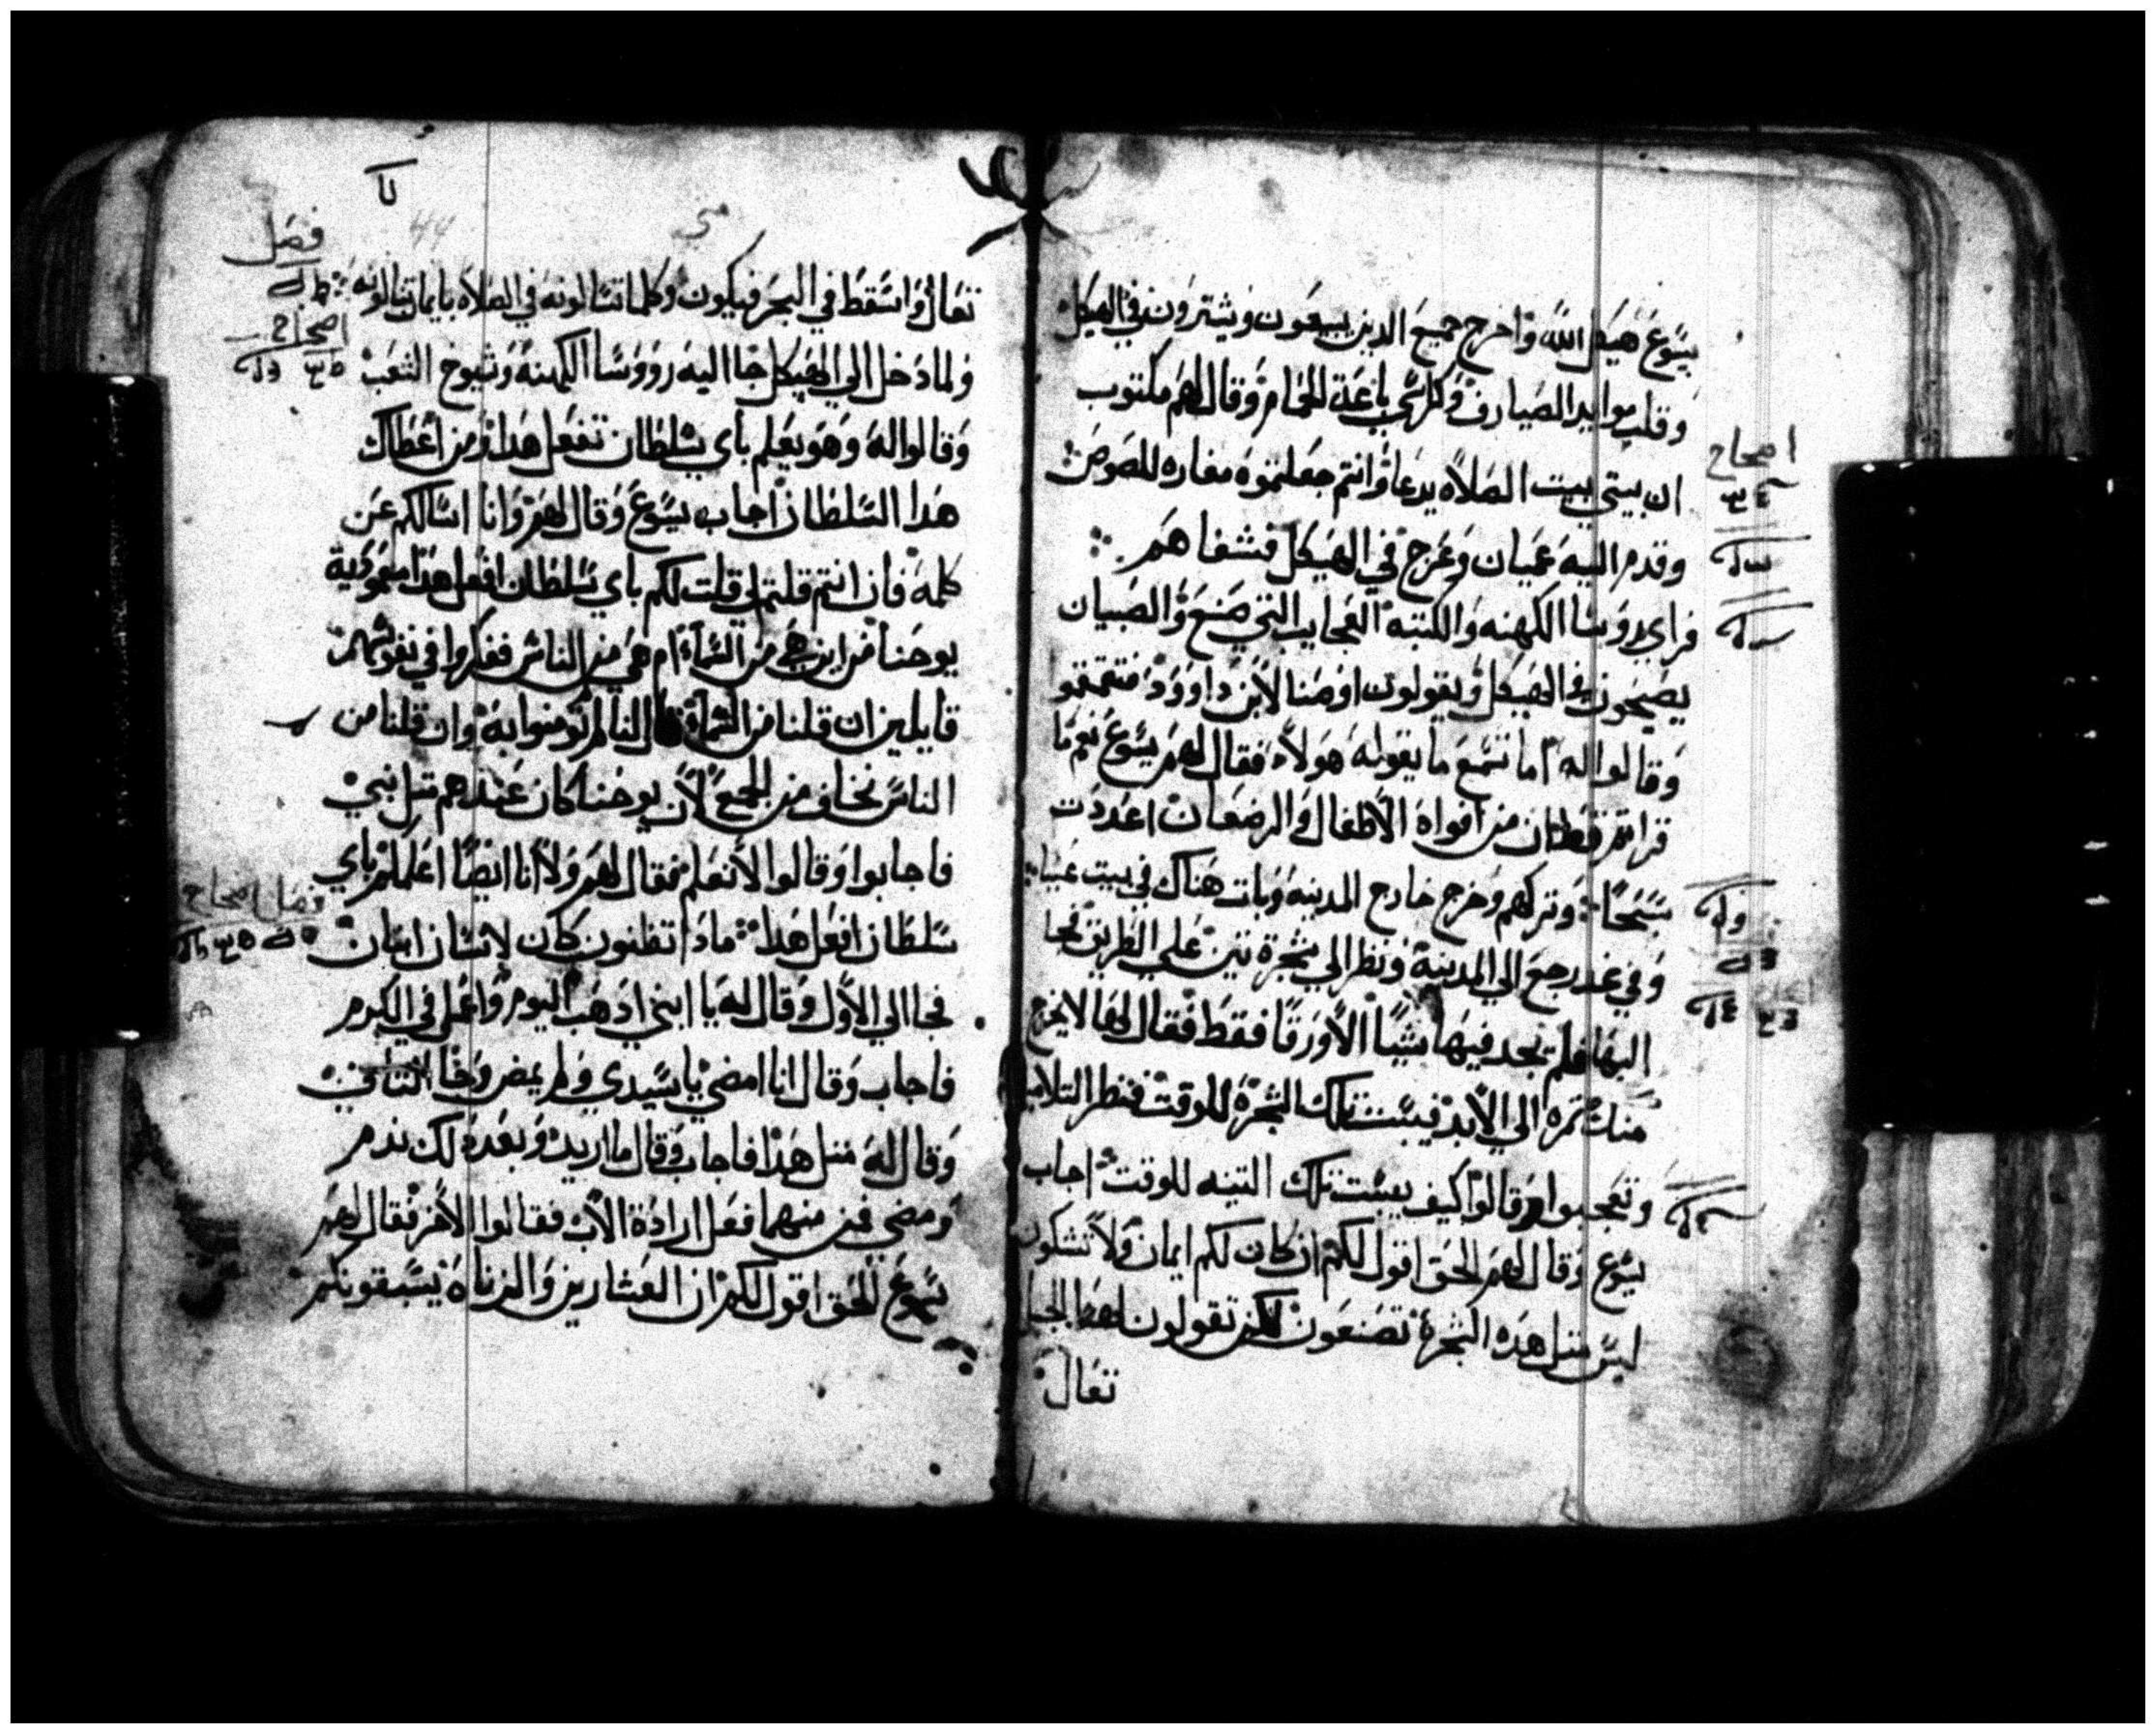 يسوع هيكل الله واخرج جميع الدين يبيعون ويشترون في الهيكل
وقلب موايد الصيارف وكراسي باعة الحمام وقال لهم مكتوب
ان بيتي بيت الصلاه يدعا وانتم جعلتموه مغاره للصوص
وقدم اليه عميان وعرج في الهيكل فشفاهم
فراي روسا الكهنه والكتبه العجايب التي صنع والصبيان
يصيحون في الهيكل ويقولون اوصنا لابن داوود فتقمقمو
وقالوا له اما تسمع ما يقوله هولاء فقال لهم يسوع نعم ما
قراتم قط ان من افواه الاطفال والرضعان اعددت
سبحًا وتركهم وخرج خارج المدينه وبات هناك في بيت عنيا
وفي غد رجع الي المدينه ونظر الي شجرة تين علي الطريق فجا
اليها فلم يجد فيها شيًا الا ورقًا فقط فقال لها لا يخرج
منك ثمره الي الابد فيبست تلك الشجرة للوقت فنظر التلاميد
وتعجبوا وقالوا كيف يبست تلك التينه للوقت اجاب
يسوع وقال لهم الحق اقول لكم ان كان لكم ايمان ولا تشكون
ليس مثل هده الشجرة تصنعون لكن تقولون لهدا الجبل
تعال
اصحاح
فصل
تعال واسقط في البحر فيكون وكلما تسالونه في الصلاه بايمان تنالونه
اصحاح
ولما دخل الي الهيكل جا اليه رووسا الكهنه وشيوخ الشعب
وقالوا له وهو يعلم باي سلطان تفعل هدا ومن اعطاك
هدا السلطان اجاب يسوع وقال لهم وانا اسالكم عن
كلمه فان انتم قلتم لي قلت لكم باي سلطان افعل هدا معمودية
يوحنا من اين هي من السماء ام هي من الناس ففكروا في نفوسهم
قايلين ان قلنا من السماء قال لنا لم تومنوا به وان قلنا من
الناس نخاف من الجمع لان يوحنا كان عندهم مثل نبي
فاجابوا وقالوا لا نعلم فقال لهم ولا انا ايضًا اعلمكم باي
فصل اصحاح
سلطان افعل هدا مادا تظنون كان لانسان ابنان
فجا الي الاول وقال له يا ابني ادهب اليوم واعمل في الكرم
فاجاب وقال انا امضي يا سيدي ولم يمض وجا الي التاني
وقال له مثل هدا فاجاب وقال ما اريد وبعد دلك ندم
ومضي فمن منهما فعل ارادة الاب فقالوا الاخر فقال لهم
يسوع الحق اقول لكم ان العشارين والزناه يسبقونكم